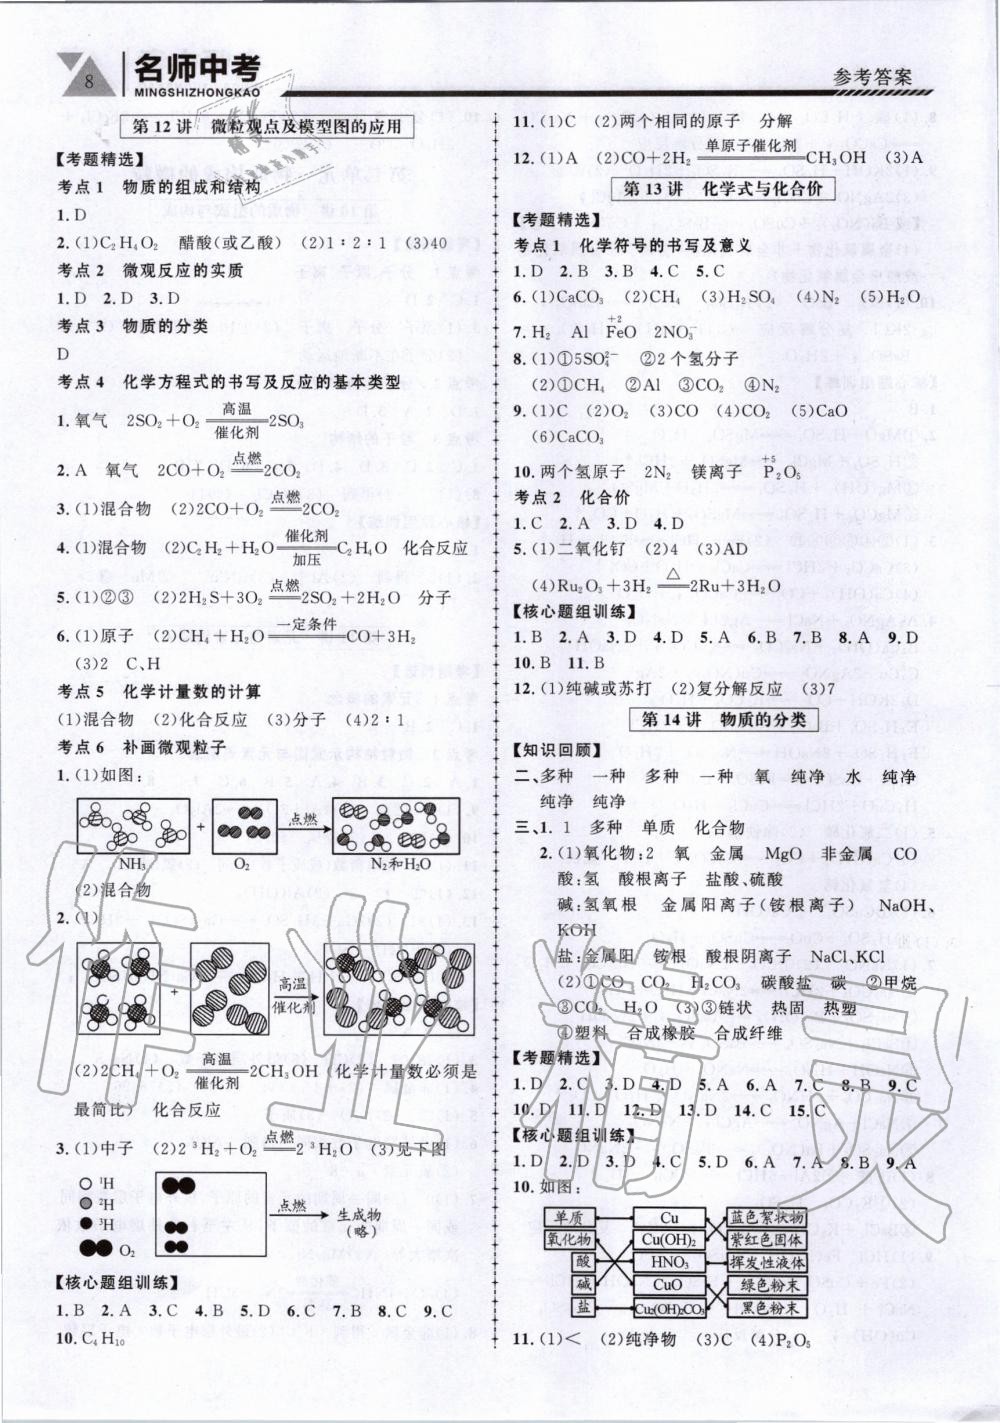 8
名师中考
MINGSHIZHONGKAO
参考答案
第 12 讲　微粒观点及模型图的应用
【考题精选】
考点 1　物质的组成和结构
1. D
2. (1)C₂H₄O₂　醋酸(或乙酸)　(2)1∶2∶1　(3)40
考点 2　微观反应的实质
1. D　2. D　3. D
考点 3　物质的分类
D
考点 4　化学方程式的书写及反应的基本类型
1. 氧气　2SO₂+O₂ ══高温/催化剂══ 2SO₃
2. A　氧气　2CO+O₂ ══点燃══ 2CO₂
3. (1)混合物　(2)2CO+O₂ ══点燃══ 2CO₂
4. (1)混合物　(2)C₂H₂+H₂O ══催化剂/加压══ C₂H₄O　化合反应
5. (1)②③　(2)2H₂S+3O₂ ══点燃══ 2SO₂+2H₂O　分子
6. (1)原子　(2)CH₄+H₂O ══一定条件══ CO+3H₂
(3)2　C、H
考点 5　化学计量数的计算
(1)混合物　(2)化合反应　(3)分子　(4)2∶1
考点 6　补画微观粒子
1. (1)如图:
+ 点燃
NH₃　O₂　N₂和H₂O
(2)混合物
2. (1)
+ 高温 催化剂
(2)2CH₄+O₂ ══高温/催化剂══ 2CH₃OH (化学计量数必须是
最简比)　化合反应
3. (1)中子　(2)2 ³H₂+O₂ ══点燃══ 2 ³H₂O　(3)见下图
¹H
²H
³H
O₂
点燃
生成物
(略)
【核心题组训练】
1. B　2. A　3. C　4. B　5. D　6. C　7. B　8. C　9. C
10. C₄H₁₀
11. (1)C　(2)两个相同的原子　分解
12. (1)A　(2)CO+2H₂ ══单原子催化剂══ CH₃OH　(3)A
第 13 讲　化学式与化合价
【考题精选】
考点 1　化学符号的书写及意义
1. D　2. B　3. B　4. C　5. C
6. (1)CaCO₃　(2)CH₄　(3)H₂SO₄　(4)N₂　(5)H₂O
7. H₂　Al　+2 FeO　2NO₃⁻
8. (1)①5SO₄²⁻　②2 个氢分子
(2)①CH₄　②Al　③CO₂　④N₂
9. (1)C　(2)O₂　(3)CO　(4)CO₂　(5)CaO
(6)CaCO₃
10. 两个氢原子　2N₂　镁离子　+5 P₂O₅
考点 2　化合价
1. C　2. A　3. D　4. D
5. (1)二氧化钌　(2)4　(3)AD
(4)Ru₂O₃+3H₂ ══△══ 2Ru+3H₂O
【核心题组训练】
1. B　2. A　3. D　4. D　5. A　6. B　7. B　8. A　9. D
10. B　11. B
12. (1)纯碱或苏打　(2)复分解反应　(3)7
第 14 讲　物质的分类
【知识回顾】
二、多种　一种　多种　一种　氧　纯净　水　纯净
纯净　纯净
三、1. 1　多种　单质　化合物
2. (1)氧化物:2　氧　金属　MgO　非金属　CO
酸:氢　酸根离子　盐酸、硫酸
碱:氢氧根　金属阳离子(铵根离子)　NaOH、
KOH
盐:金属阳　铵根　酸根阴离子　NaCl、KCl
(2)①CO　CO₂　H₂CO₃　碳酸盐　碳　②甲烷
③CO₂　H₂O　(3)③链状　热固　热塑
④塑料　合成橡胶　合成纤维
【考题精选】
1. D　2. C　3. D　4. D　5. A　6. A　7. C　8. B　9. C
10. D　11. D　12. D　13. D　14. C　15. C
【核心题组训练】
1. D　2. D　3. D　4. C　5. D　6. A　7. A　8. B　9. A
10. 如图:
单质　Cu　蓝色絮状物
氧化物　Cu(OH)₂　紫红色固体
酸　HNO₃　挥发性液体
碱　CuO　绿色粉末
盐　Cu₂(OH)₂CO₃　黑色粉末
11. (1)<　(2)纯净物　(3)C　(4)P₂O₅
作业精灵